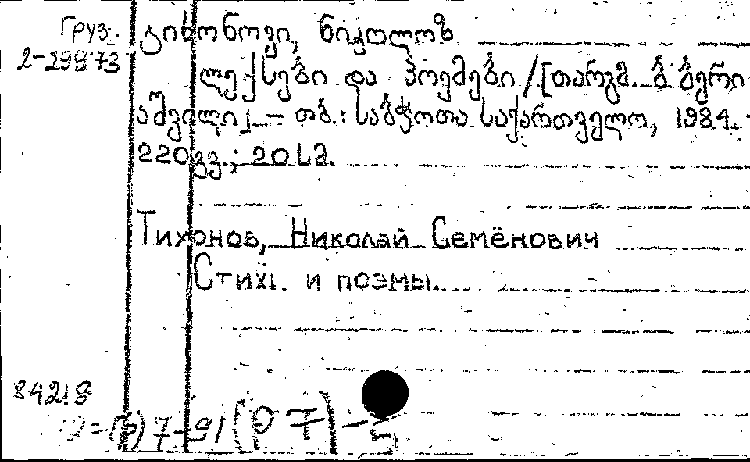 Груз.
2-29873
ტიხონოვი, ნიკოლოზ
ლექსები და პოემები / [თარგმ. ბ ბერი
აშვილი]. – თბ.: საბჭოთა საქართველო, 1984. -
220გვ.; 20 სმ.
Тихонов, Николай Семёнович
Стихi. и поэмы.
84218
7-91(07)-5